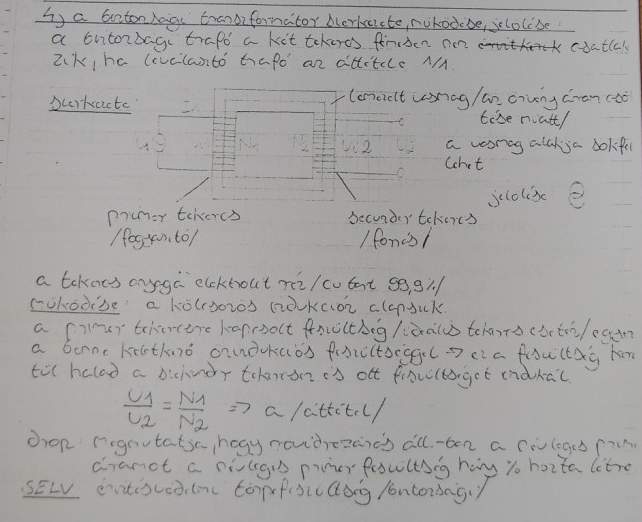 4, a biztonsági transzformátor szerkezete, működése, jelölése
a biztonsági trafó a két tekercs fémesen nem csatlak
zik, ha leválasztó trafó az áttétele 1/1.
szerkezete:
lemezelt vasmag/az örvény áram csö
kése miatt/
N1 N2 Ui2 U2
a vasmag alakja sokfél
lehet
jelölése
primer tekercs
/fogyasztó/
secunder tekercs
/forrás/
a tekercs anyaga elektrolit réz/cu tart 99,9%/
működése: a kölcsönös indukción alapszik.
a primer tekercsre kapcsolt feszültség/ideális tekercs esetén/egyen
a benne keletkező önindukciós feszültséggel => ez a feszültség
túl halad a szekunder tekercsen és ott feszültséget indukál
U1/U2 = N1/N2 => a /áttétel/
drop: megmutatja, hogy rövidrezárás áll-ban a névleges prim
áramot a névleges primer feszültség hány % hozta létre
SELV érintésvédelmi törpefeszültség /biztonsági/